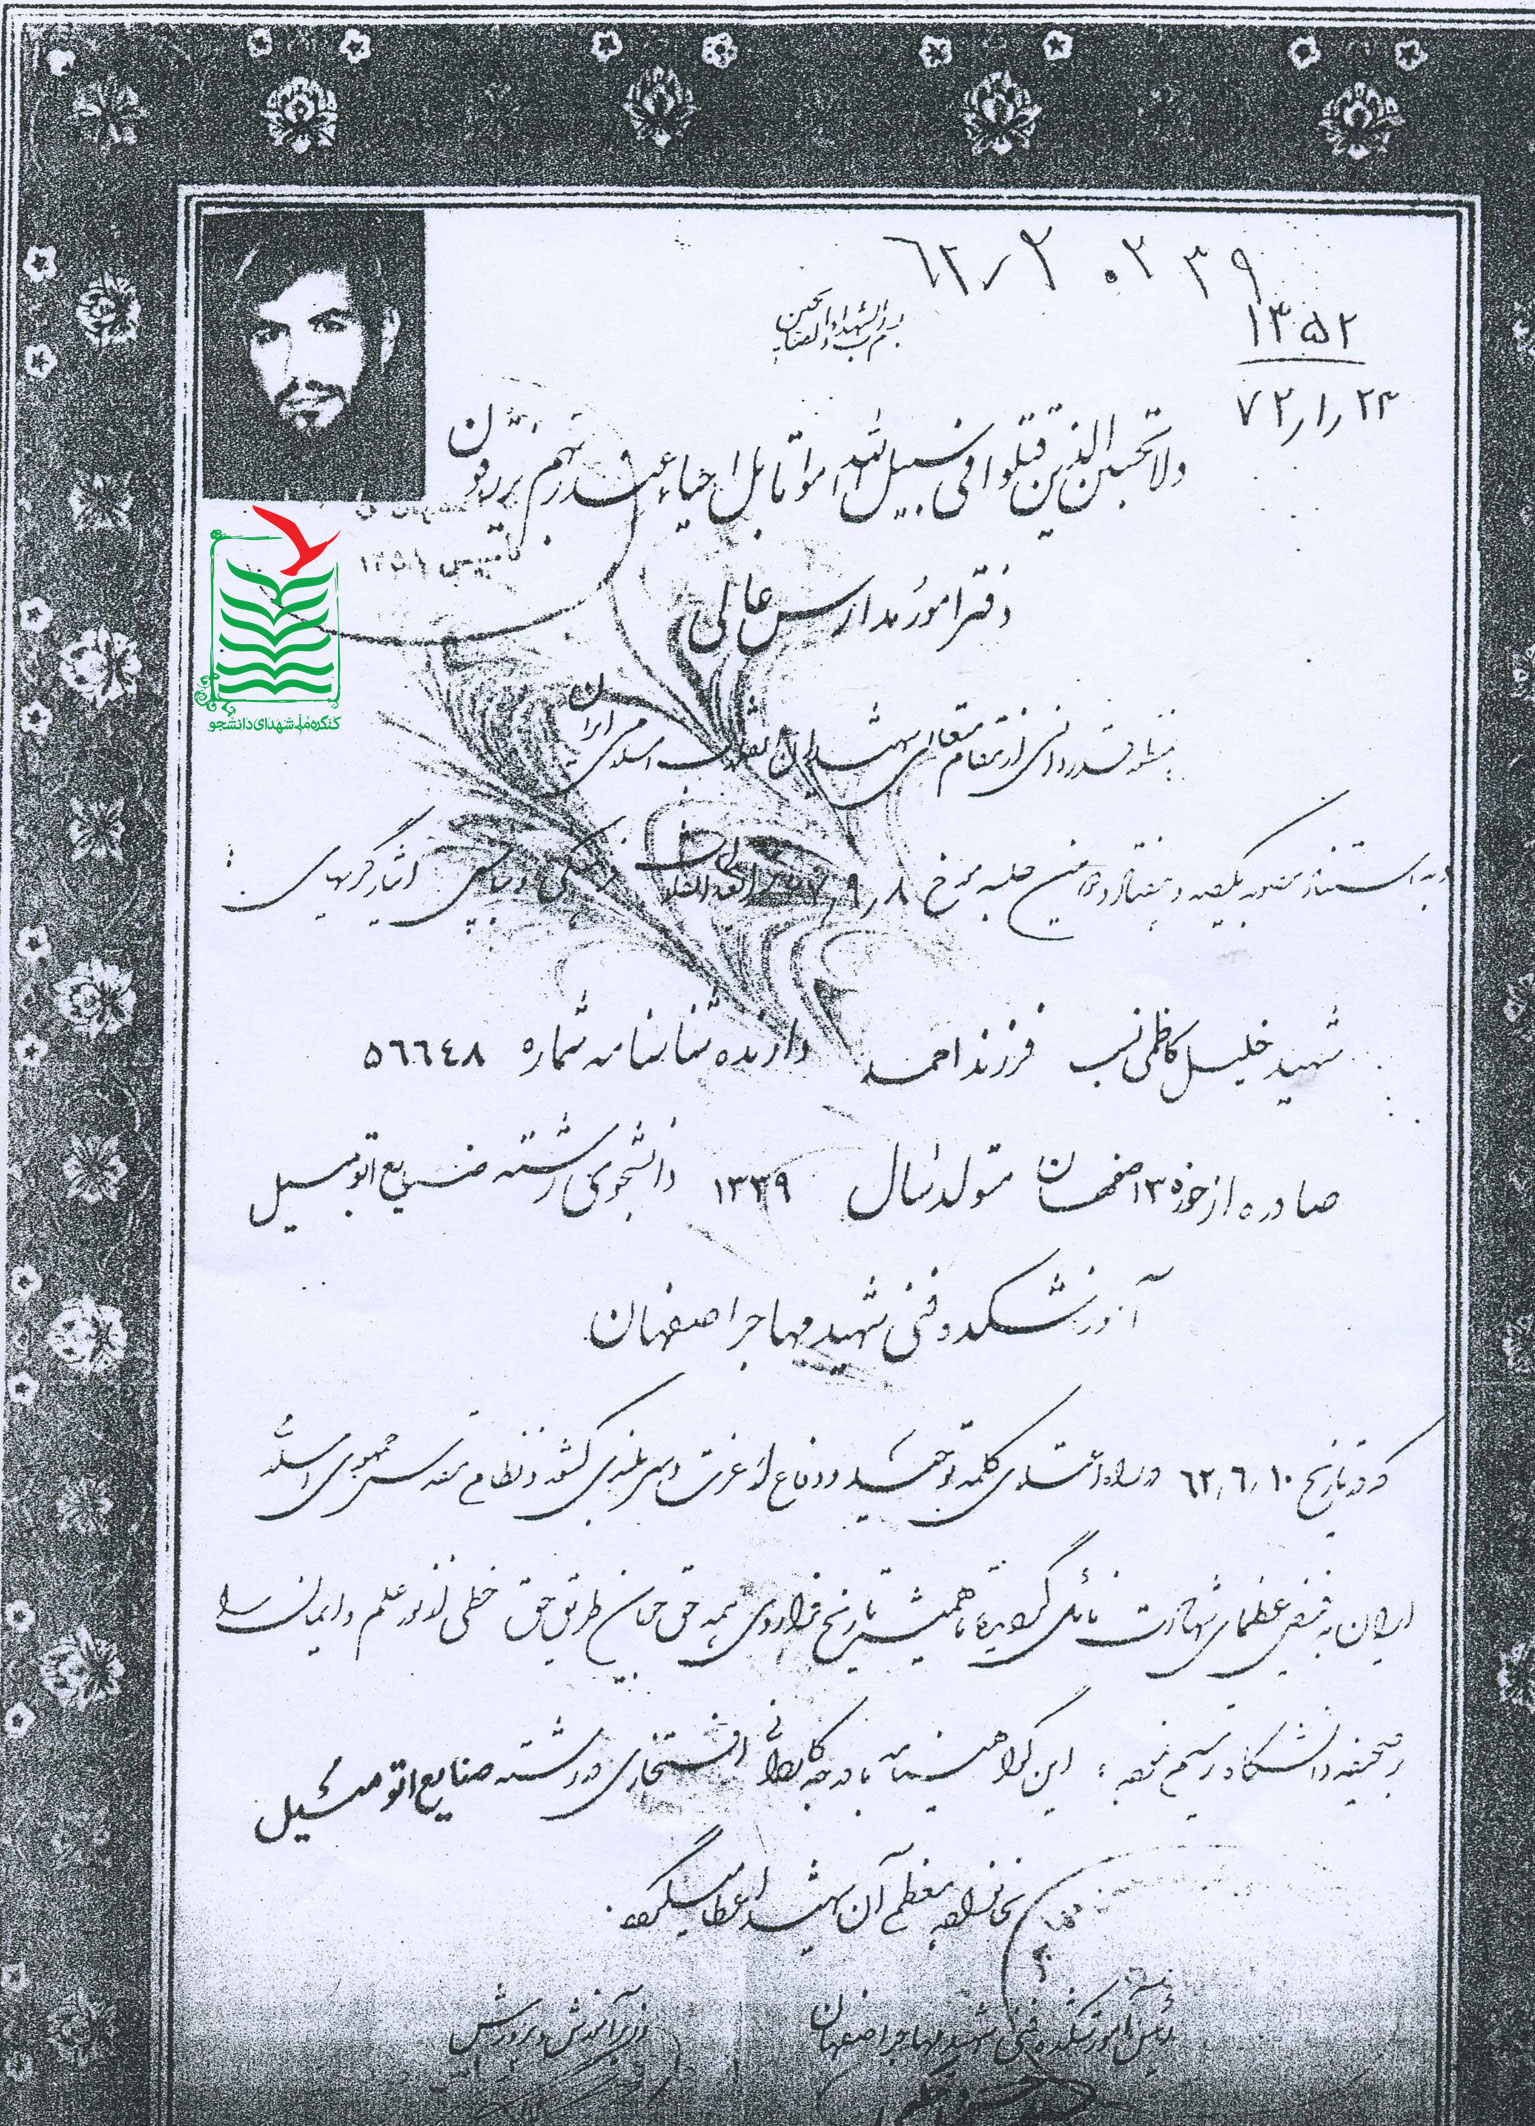 ۶۲/۲۰۲۳۹
۱۳۵۲
۷۲/۱/۲۴
برب الشهداء و الصدیقین
ولا تحسبن الذین قتلوا فی سبیل الله امواتا بل احیاء عند ربهم یرزقون
تأسیس ۱۳۵۱
دفتر امور مدارس عالی
کنگره ملی شهدای دانشجو
بمنظور قدردانی از مقام متعالی شهیدان انقلاب اسلامی ایران
و به استناد مصوبه یکصد و هفتاد و دومین جلسه مورخ ۶۷٫۹٫۸ شورایعالی انقلاب فرهنگی و بپاس ایثارگریهای :
شهید خلیل کاظمی نسب فرزند احمد دارنده شناسنامه شماره ۵۶۶۴۸
صادره از حوزه ۳ اصفهان متولد سال ۱۳۳۹ دانشجوی رشته صنایع اتومبیل
آموزشکده فنی شهید مهاجر اصفهان
که در تاریخ ۶۲٫۶٫۱۰ در راه اعتلای کلمه توحید و دفاع از عزت و سربلندی کشور و نظام مقدس جمهوری اسلامی
ایران به فیض عظمای شهادت نائل گردیده تا همیشه تاریخ فراروی همه حق جویان طریق حق خطی از نور علم و ایمان را
بر صحیفه دانشگاه ترسیم نموده ، این گواهینامه با درجه کاردانی افتخاری در رشته صنایع اتومبیل
بخانواده معظم آن شهید اعطا میگردد.
رئیس آموزشکده فنی شهید مهاجر اصفهان
وزیر آموزش و پرورش